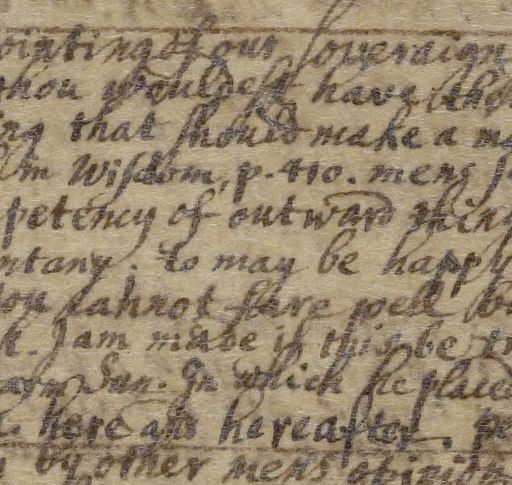 ointing of our soveraign
thou wouldest have
ing that should make a
in wisdom. p. 110. mens
petency of outward thing
ntany. to may be happy
you cannot fare well
t. I am made if this be
warm Sun. In which he placed
here and hereafter.
by other mens opinion